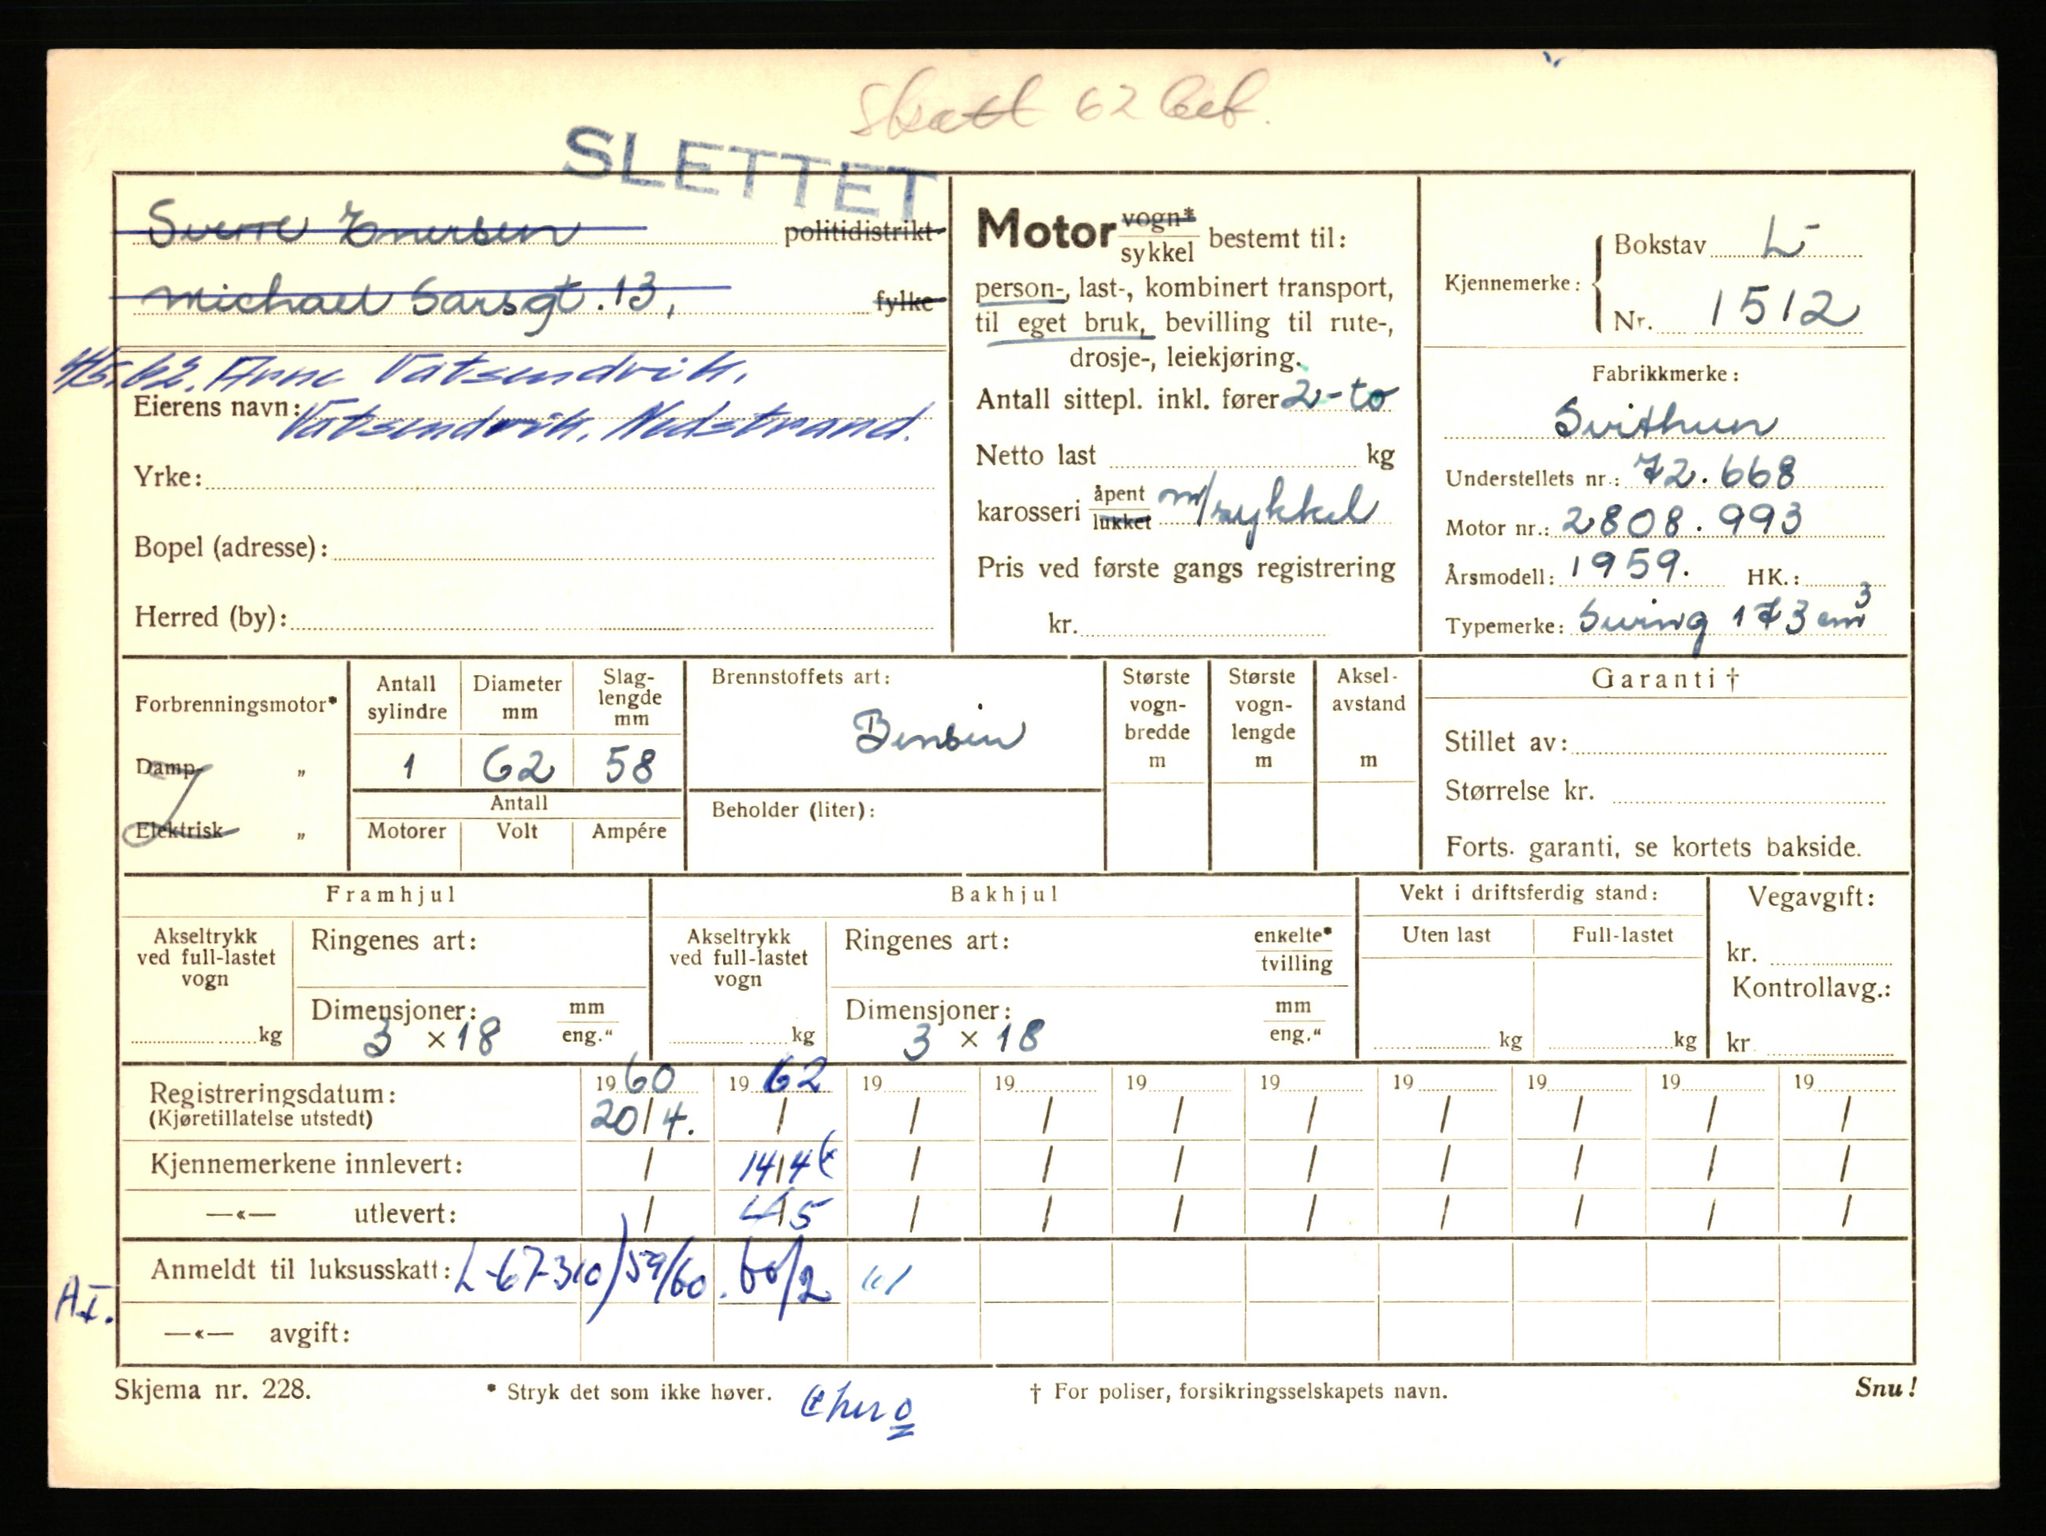 Skatt 62 bet.
SLETTET
Sverre Enersen politidistrikt
Michael Sarsgt. 13, fylke
4/5.62. Arne Vatsendvik,
Eierens navn: Vatsendvik, Nedstrand.
Yrke:
Bopel (adresse):
Herred (by):
Motor vogn* / sykkel bestemt til:
person-, last-, kombinert transport,
til eget bruk, bevilling til rute-,
drosje-, leiekjøring.
Antall sittepl. inkl. fører 2-to
Netto last kg
karosseri åpent / lukket m/sykkel
Pris ved første gangs registrering
kr.
Kjennemerke: Bokstav L-
Nr. 1512
Fabrikkmerke:
Svithun
Understellets nr.: 72.668
Motor nr.: 2808.993
Årsmodell: 1959. HK.:
Typemerke: Swing 173 cm³
Forbrenningsmotor*
Damp- „
Elektrisk „
Antall sylindre
Diameter mm
Slag-lengde mm
1 62 58
Antall
Motorer Volt Ampére
Brennstoffets art:
Bensin
Beholder (liter):
Største vogn-bredde m
Største vogn-lengde m
Aksel-avstand m
Garanti †
Stillet av:
Størrelse kr.
Forts. garanti, se kortets bakside.
Framhjul
Akseltrykk ved full-lastet vogn
kg
Ringenes art:
Dimensjoner: mm / eng."
3 × 18
Bakhjul
Akseltrykk ved full-lastet vogn
kg
Ringenes art: enkelte* / tvilling
Dimensjoner: mm / eng."
3 × 18
Vekt i driftsferdig stand:
Uten last Full-lastet
kg kg
Vegavgift:
kr.
Kontrollavg.:
kr.
Registreringsdatum: 1960 1962 19 19 19 19 19 19 19 19
(Kjøretillatelse utstedt) 20/4. / / / / / / / / /
Kjennemerkene innlevert: / 14/4 / / / / / / / /
—«— utlevert: / 4/5 / / / / / / / /
Anmeldt til luksusskatt: L-67310) 59/60. 60/2
—«— avgift:
Skjema nr. 228. * Stryk det som ikke høver. † For poliser, forsikringsselskapets navn. Snu!